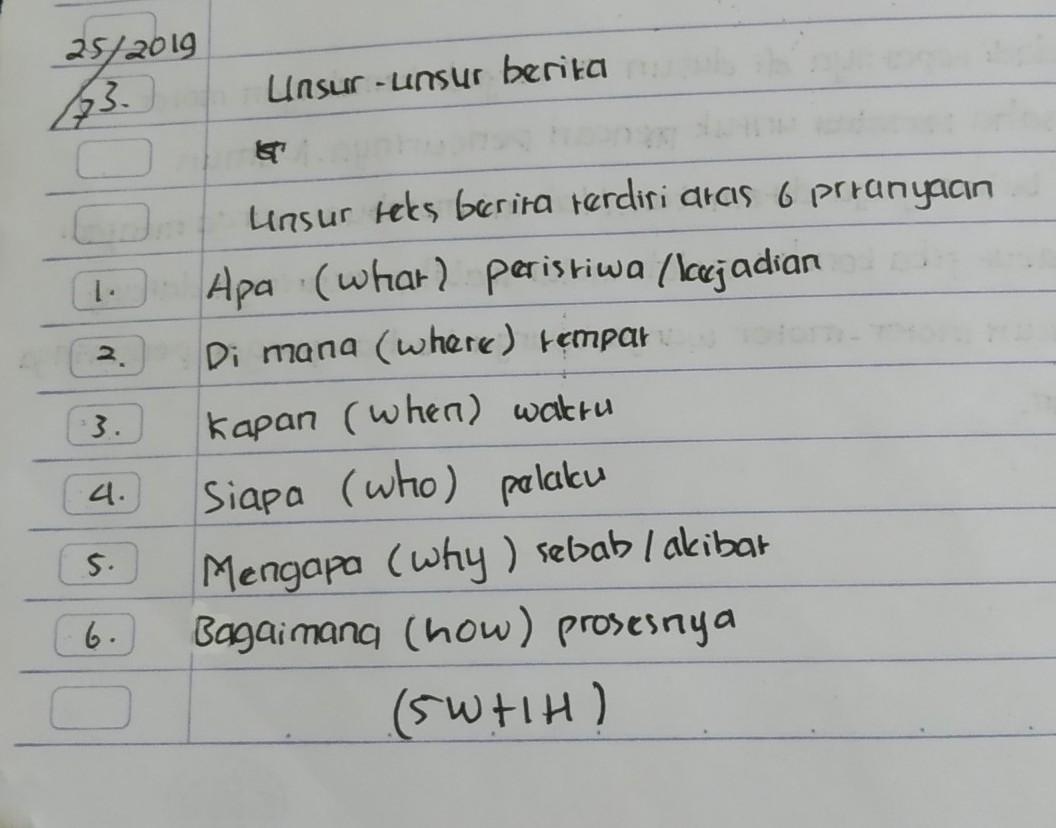 25/2019
/73.
Unsur-unsur berita
Unsur teks berita terdiri atas 6 prtanyaan
1. Apa (what) peristiwa/kejadian
2. Di mana (where) tempat
3. Kapan (when) waktu
4. Siapa (who) pelaku
5. Mengapa (why) sebab/akibat
6. Bagaimana (how) prosesnya
(5W+1H)